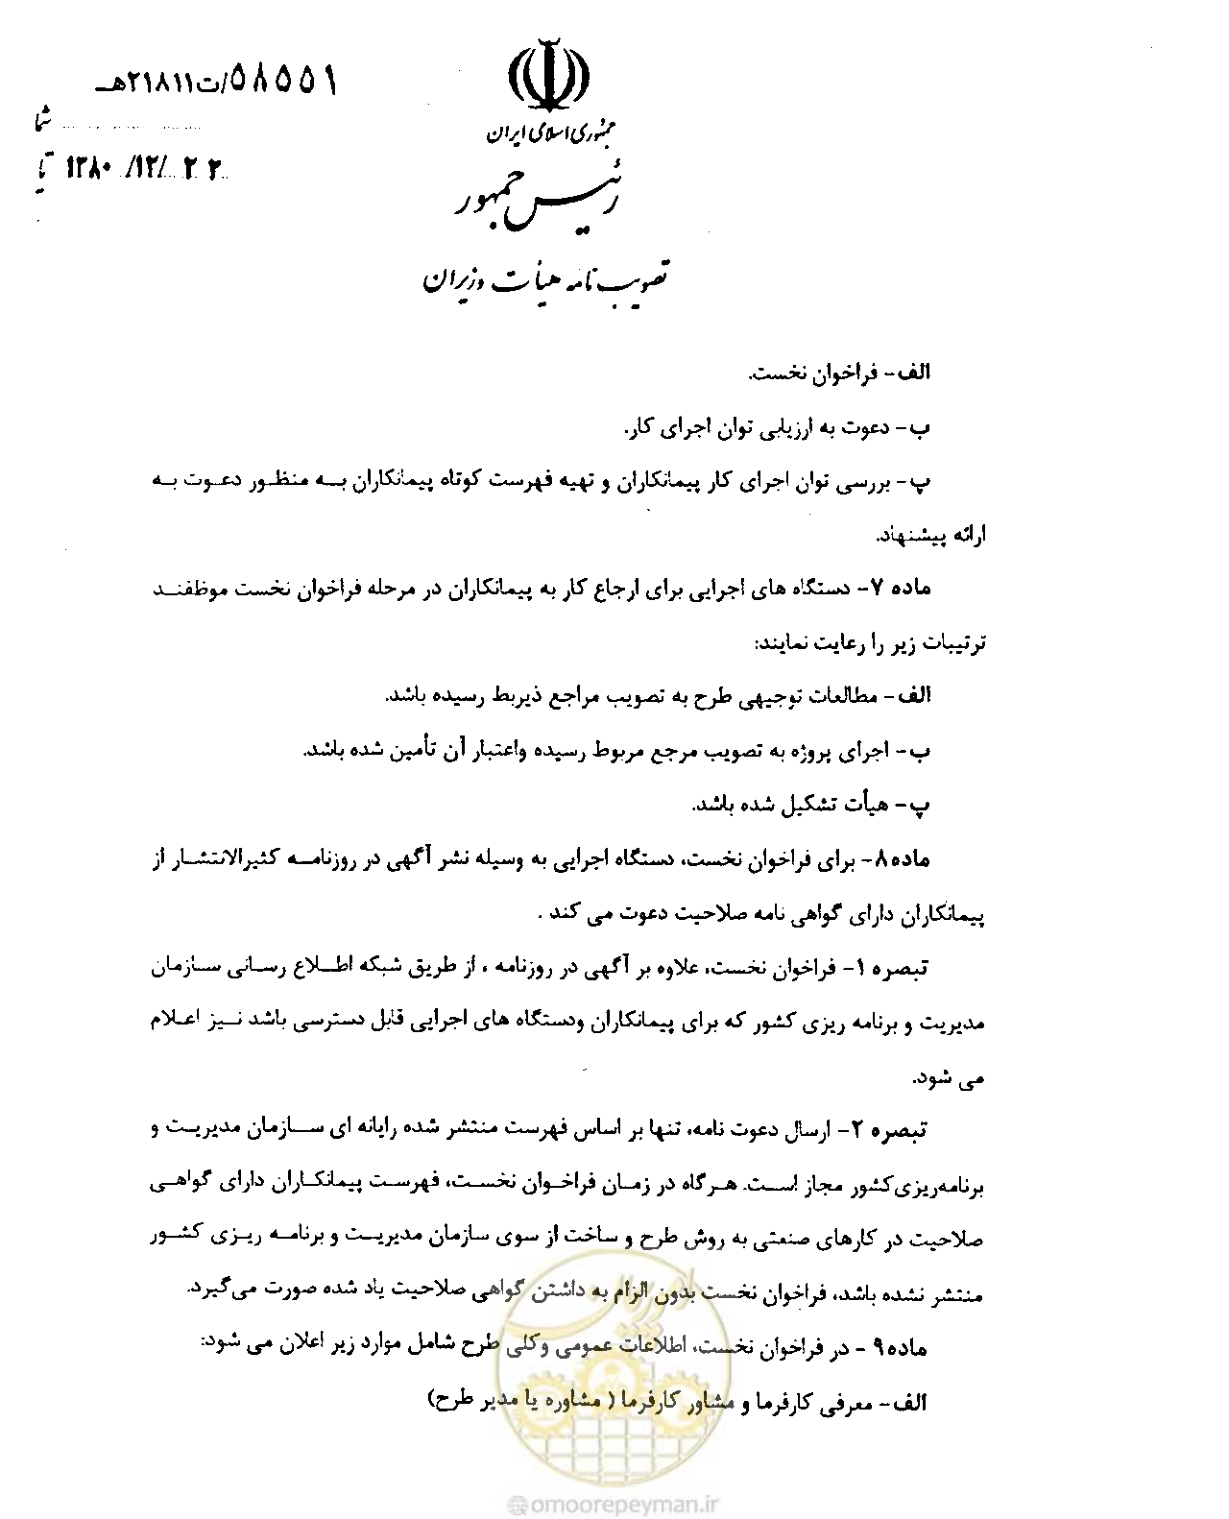 ۵۸۵۵۱/ت۲۱۸۱۱هـ
شما
۱۳۸۰/۱۲/۲۲ تا
جمهوری اسلامی ایران
رئیس جمهور
تصویب نامه هیأت وزیران
الف- فراخوان نخست.
ب- دعوت به ارزیابی توان اجرای کار.
پ- بررسی توان اجرای کار پیمانکاران و تهیه فهرست کوتاه پیمانکاران بـه منظـور دعـوت بـه
ارائه پیشنهاد.
ماده ۷- دستگاه های اجرایی برای ارجاع کار به پیمانکاران در مرحله فراخوان نخست موظفنـد
ترتیبات زیر را رعایت نمایند:
الف- مطالعات توجیهی طرح به تصویب مراجع ذیربط رسیده باشد.
ب- اجرای پروژه به تصویب مرجع مربوط رسیده واعتبار آن تأمین شده باشد.
پ- هیأت تشکیل شده باشد.
ماده۸- برای فراخوان نخست، دستگاه اجرایی به وسیله نشر آگهی در روزنامـه کثیرالانتشـار از
پیمانکاران دارای گواهی نامه صلاحیت دعوت می کند .
تبصره ۱- فراخوان نخست، علاوه بر آگهی در روزنامه ، از طریق شبکه اطـلاع رسـانی سـازمان
مدیریت و برنامه ریزی کشور که برای پیمانکاران ودستگاه های اجرایی قابل دسترسی باشد نـیز اعـلام
می شود.
تبصره ۲- ارسال دعوت نامه، تنها بر اساس فهرست منتشر شده رایانه ای سـازمان مدیریـت و
برنامه‌ریزی‌کشور مجاز اسـت. هـرگاه در زمـان فراخـوان نخسـت، فهرسـت پیمانکـاران دارای گواهـی
صلاحیت در کارهای صنعتی به روش طرح و ساخت از سوی سازمان مدیریـت و برنامـه ریـزی کشـور
منتشر نشده باشد، فراخوان نخست بدون الزام به داشتن گواهی صلاحیت یاد شده صورت می‌گیرد.
ماده۹ - در فراخوان نخست، اطلاعات عمومی وکلی طرح شامل موارد زیر اعلان می شود:
الف- معرفی کارفرما و مشاور کارفرما ( مشاوره یا مدیر طرح)
@omoorepeyman.ir